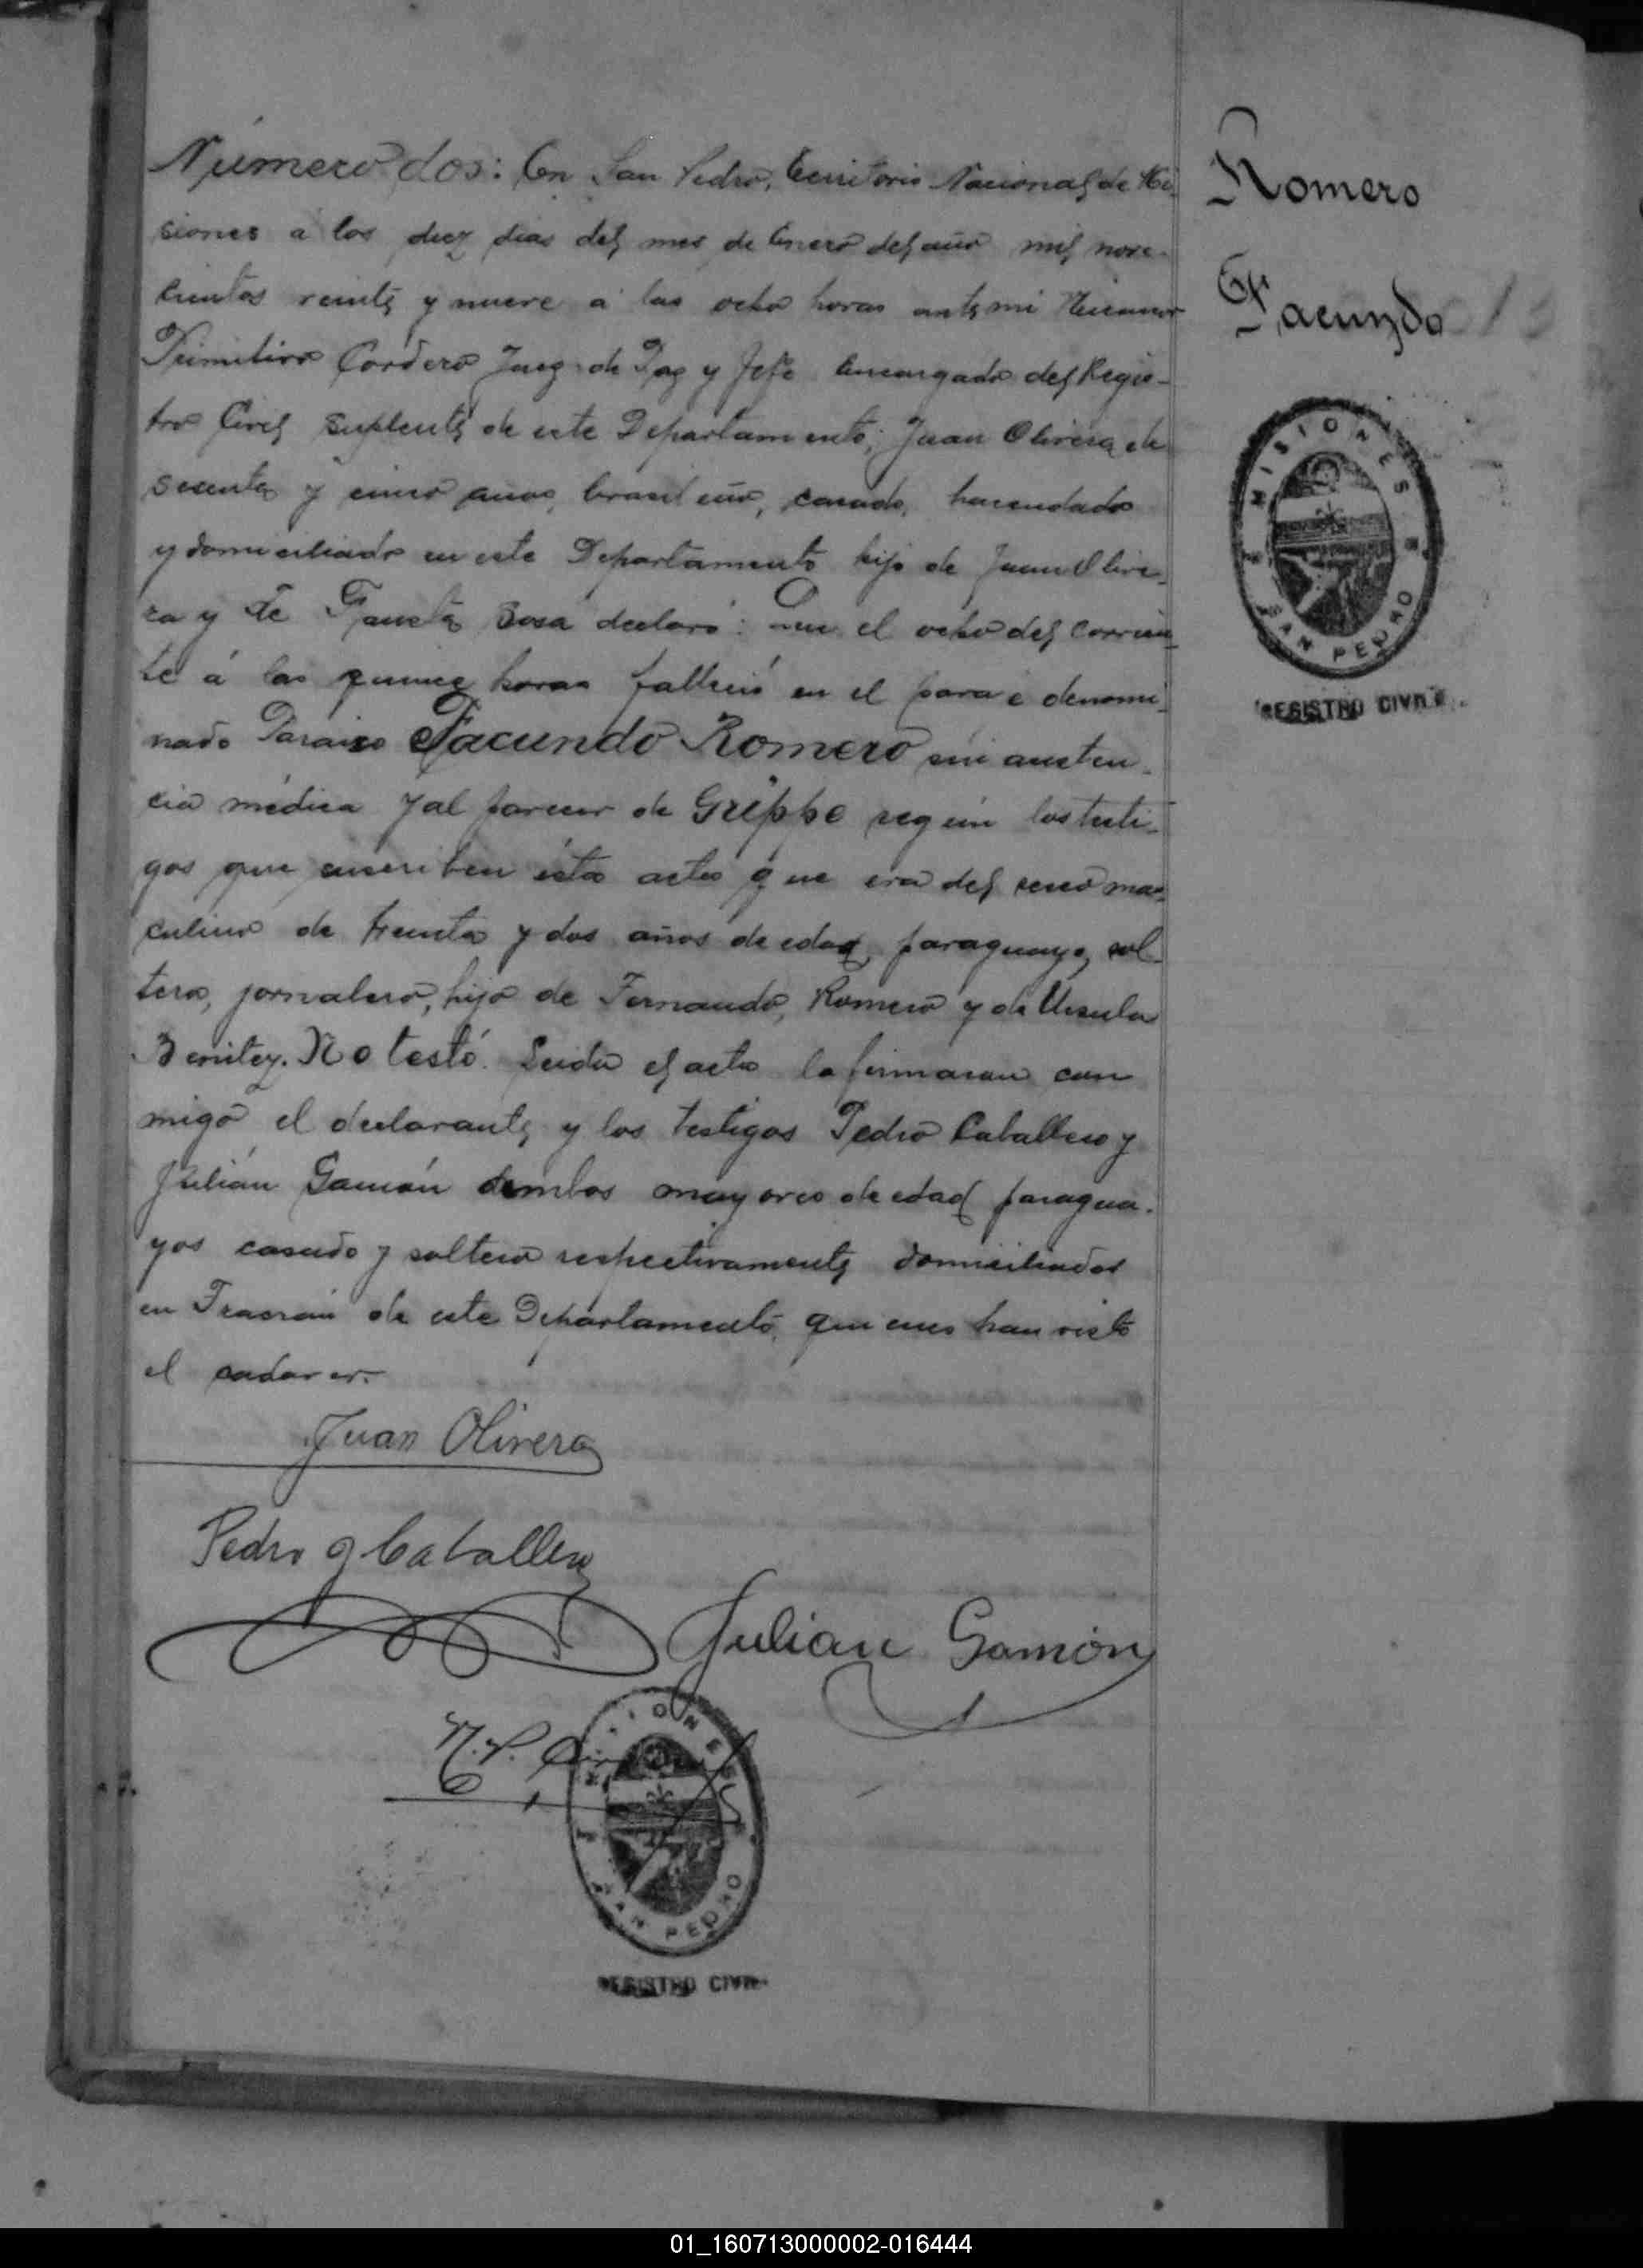 Número dos: En San Pedro, Territorio Nacional de Mi-
siones a los diez dias del mes de Enero del año mil nove-
cientos veinte y nueve a las ocho horas ante mi Nicanor
Primitivo Cordero Juez de Paz y Jefe Encargado del Regis-
tro Civil Suplente de este Departamento; Juan Olivera de
sesenta y cinco años, brasilero, casado, hacendado
y domiciliado en este Departamento hijo de Juan Olive-
ra y de Fausta Sosa declaró: Que el ocho del corrien-
te á las quince horas falleció en el paraje denomi-
nado Paraiso Facundo Romero sin asisten-
cia médica y al parecer de Grippe según los testi-
gos que suscriben esta acta que era del sexo mas-
culino de treinta y dos años de edad, paraguayo, sol-
tero, jornalero, hijo de Fernando Romero y de Ursula
Benitez. No testó. Leida el acta la firmaron con
migo el declarante y los testigos Pedro Caballero y
Julián Gamón ambos mayores de edad paragua-
yos casado y soltero respectivamente domiciliados
en Fracrán de este Departamento, quienes han visto
el cadaver.
Juan Olivera
Pedro G Caballero
Julian Gamón
N. P.
MISIONES
SAN PEDRO
REGISTRO CIVIL
Romero
Facundo
MISIONES
SAN PEDRO
REGISTRO CIVIL
01_160713000002-016444